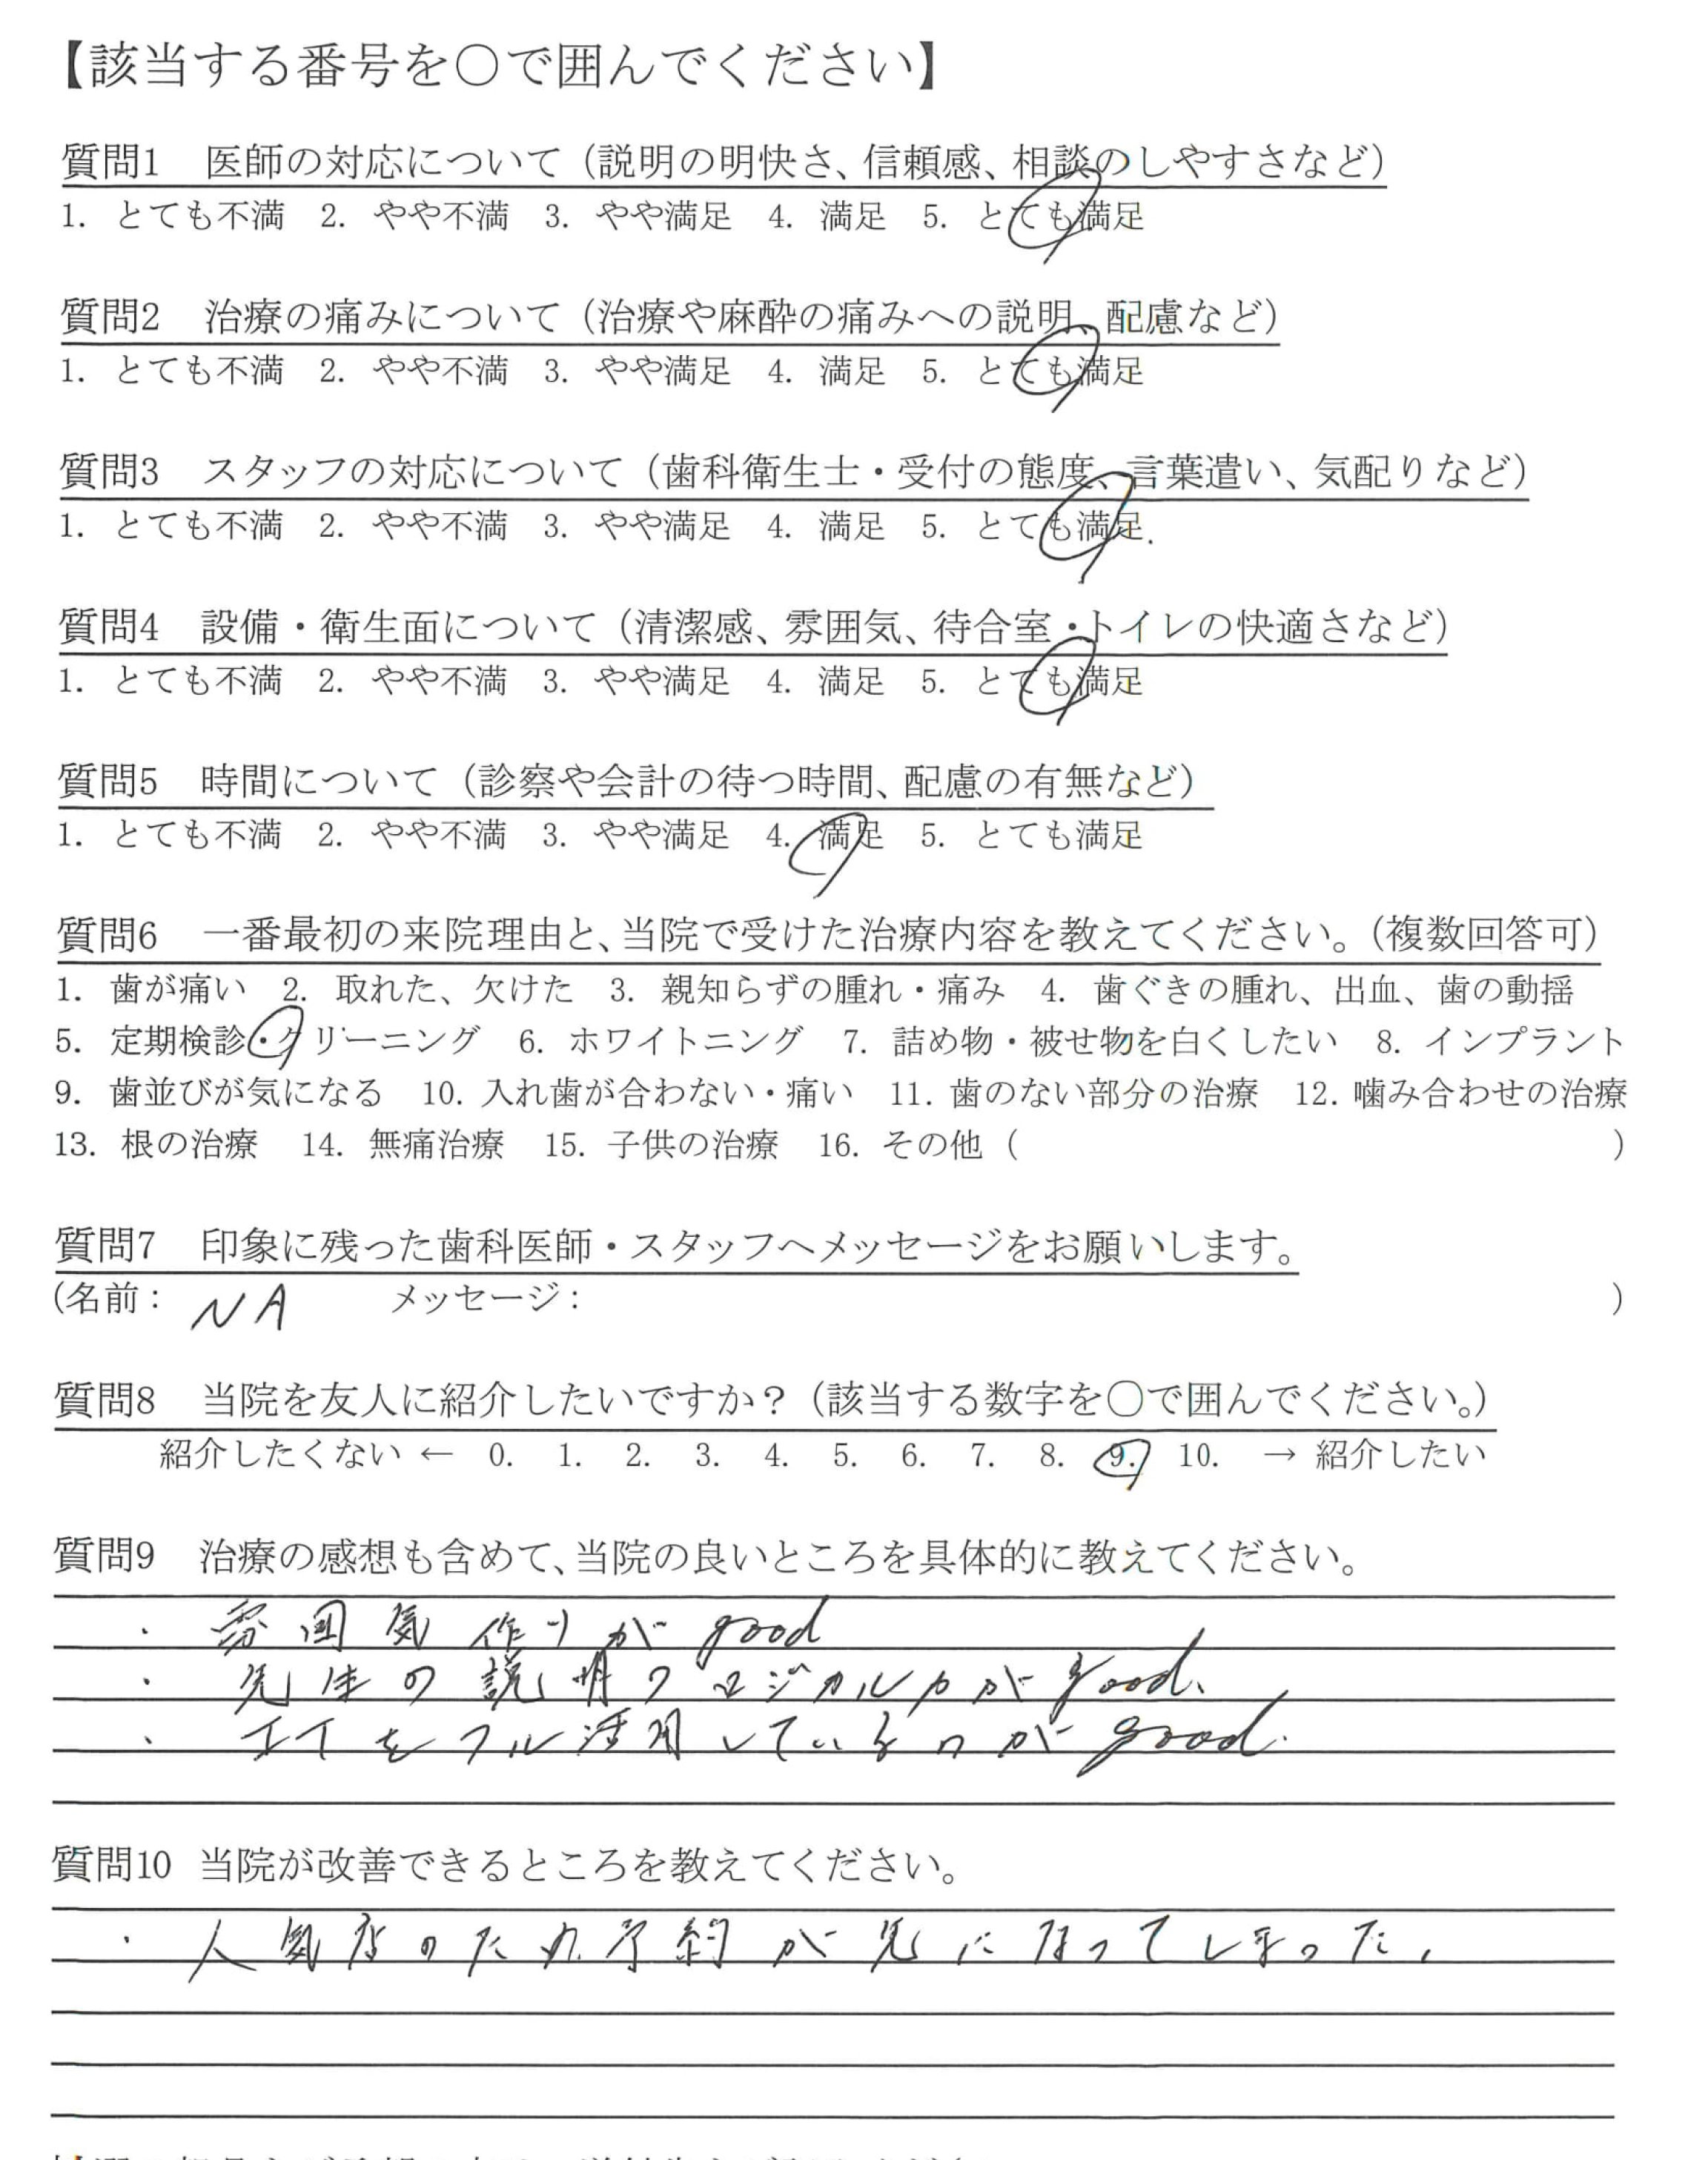 【該当する番号を○で囲んでください】
質問1 医師の対応について（説明の明快さ、信頼感、相談のしやすさなど）
1. とても不満 2. やや不満 3. やや満足 4. 満足 5. とても満足
質問2 治療の痛みについて（治療や麻酔の痛みへの説明、配慮など）
1. とても不満 2. やや不満 3. やや満足 4. 満足 5. とても満足
質問3 スタッフの対応について（歯科衛生士・受付の態度、言葉遣い、気配りなど）
1. とても不満 2. やや不満 3. やや満足 4. 満足 5. とても満足
質問4 設備・衛生面について（清潔感、雰囲気、待合室・トイレの快適さなど）
1. とても不満 2. やや不満 3. やや満足 4. 満足 5. とても満足
質問5 時間について（診察や会計の待つ時間、配慮の有無など）
1. とても不満 2. やや不満 3. やや満足 4. 満足 5. とても満足
質問6 一番最初の来院理由と、当院で受けた治療内容を教えてください。（複数回答可）
1. 歯が痛い 2. 取れた、欠けた 3. 親知らずの腫れ・痛み 4. 歯ぐきの腫れ、出血、歯の動揺
5. 定期検診・クリーニング 6. ホワイトニング 7. 詰め物・被せ物を白くしたい 8. インプラント
9. 歯並びが気になる 10. 入れ歯が合わない・痛い 11. 歯のない部分の治療 12. 噛み合わせの治療
13. 根の治療 14. 無痛治療 15. 子供の治療 16. その他（ ）
質問7 印象に残った歯科医師・スタッフへメッセージをお願いします。
(名前： NA メッセージ： )
質問8 当院を友人に紹介したいですか？（該当する数字を○で囲んでください。）
紹介したくない ← 0. 1. 2. 3. 4. 5. 6. 7. 8. 9. 10. → 紹介したい
質問9 治療の感想も含めて、当院の良いところを具体的に教えてください。
・雰囲気作りが good
・先生の説明のロジカル力が good、
・ITをフル活用しているのが good.
質問10 当院が改善できるところを教えてください。
・人気店のため予約が先になってしまった、